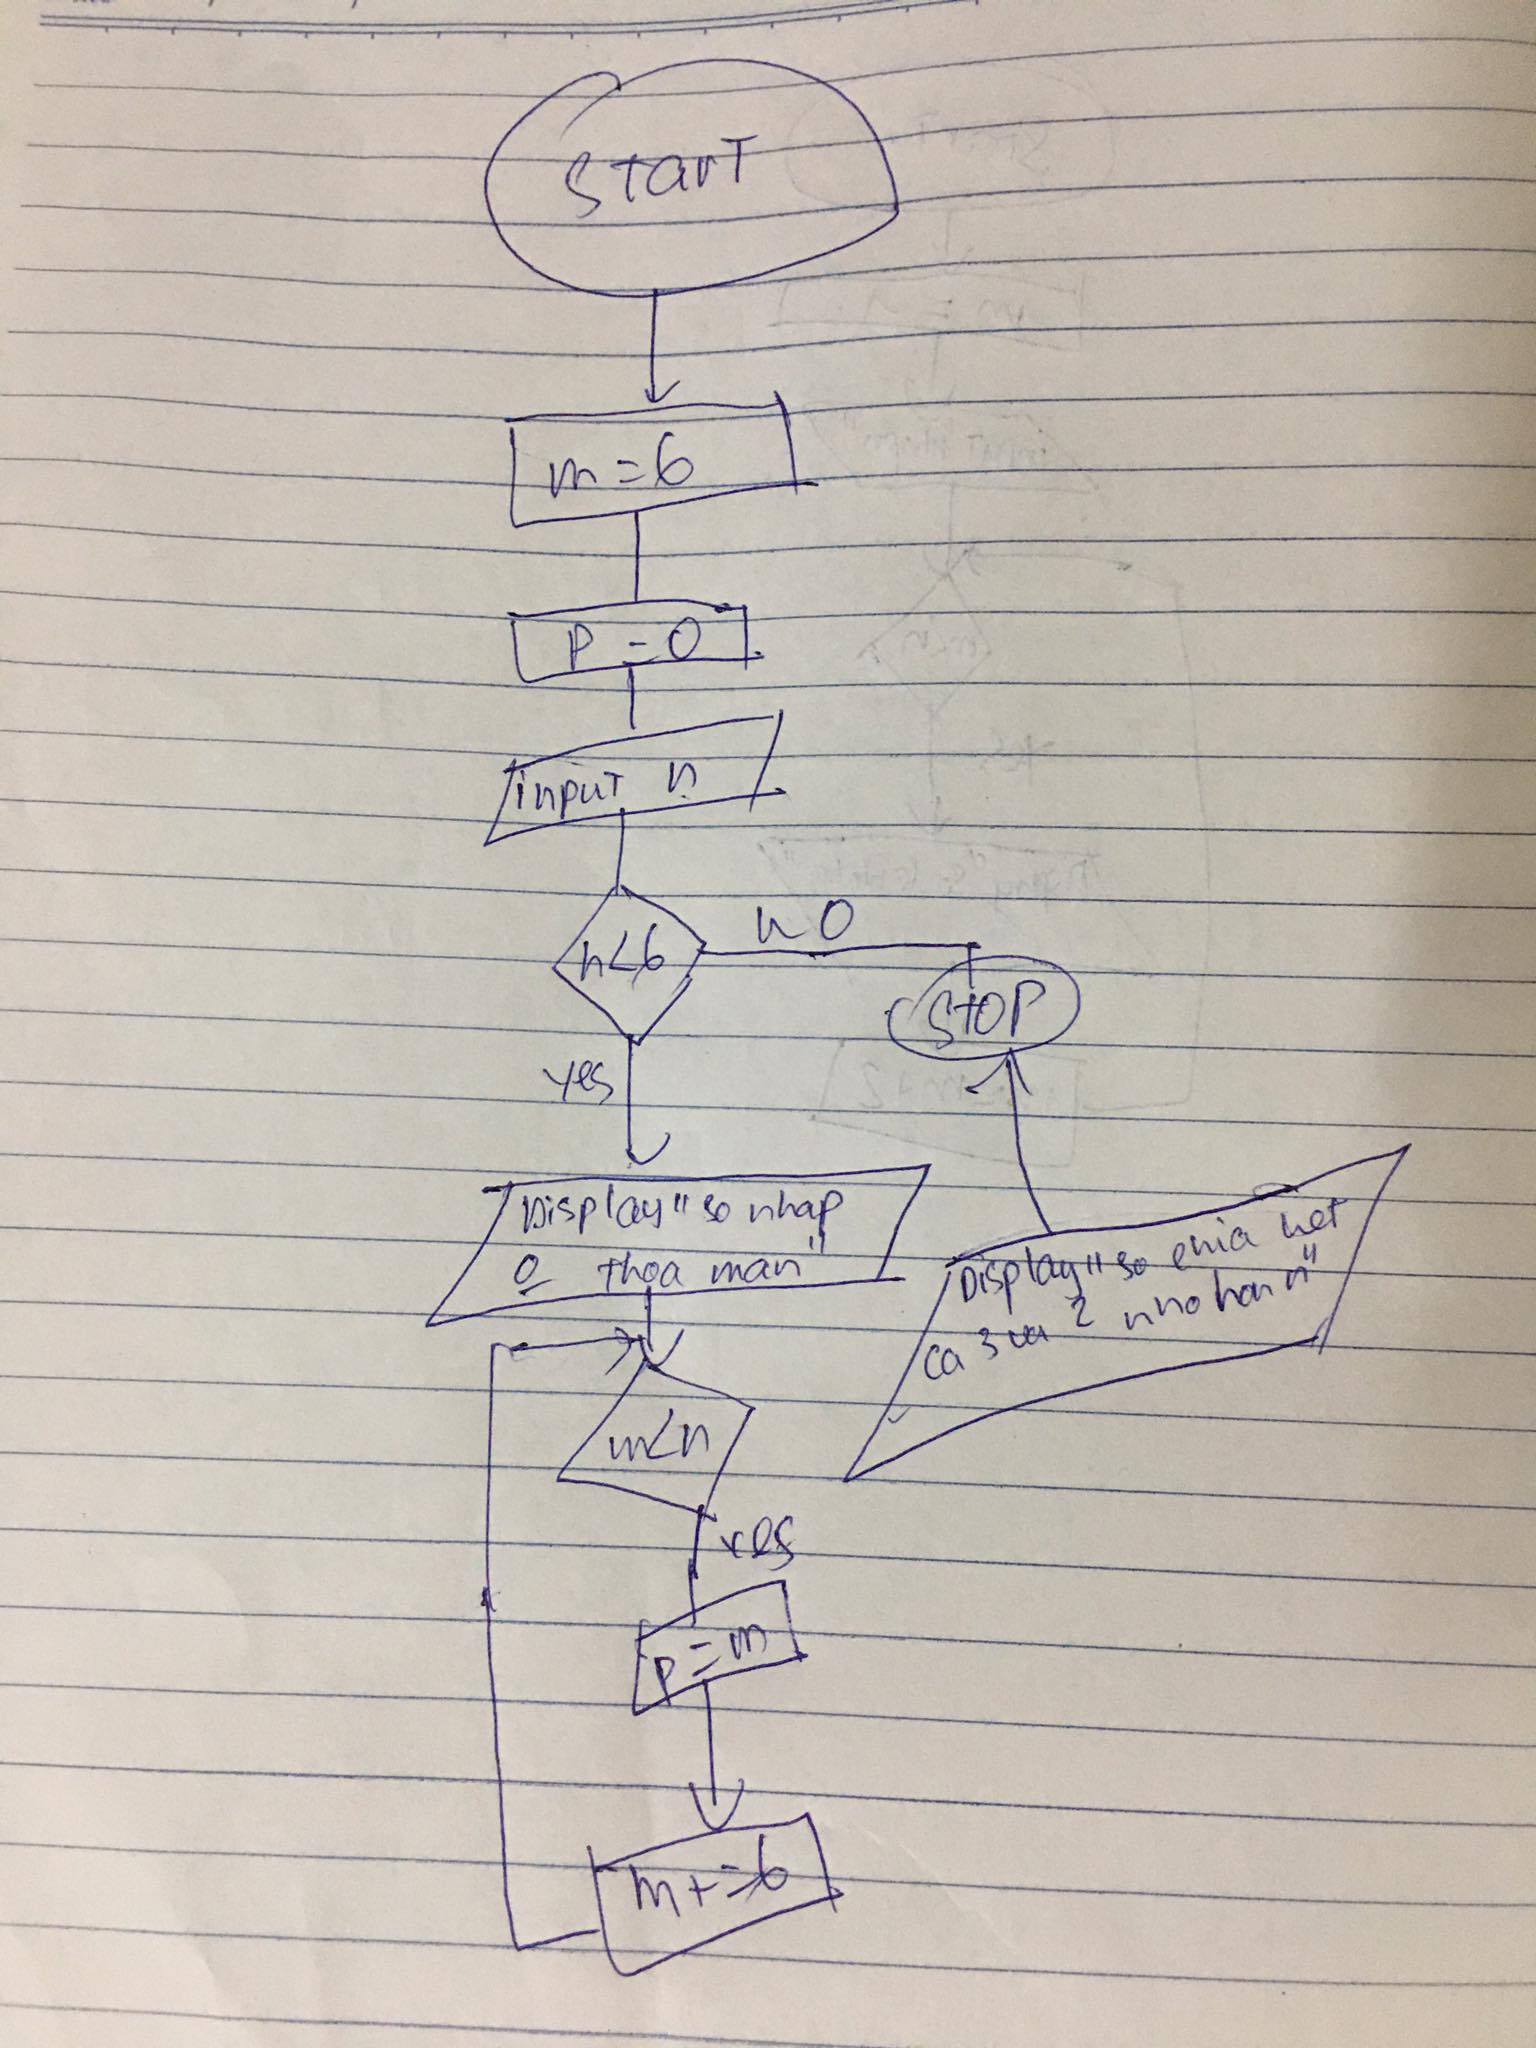 START
m = 6
P = 0
input n
n<6
no
STOP
yes
Display "so nhap
o thoa man"
Display "so chia het
ca 3 va 2 nho hon n"
m<n
yes
P = m
m+=6